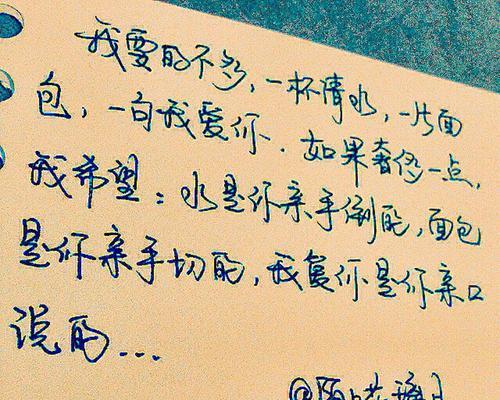 我要的不多，一杯清水，一片面
包，一句我爱你．如果奢侈一点，
我希望：水是你亲手倒的，面包
是你亲手切的，我爱你是你亲口
说的...
@陌上花